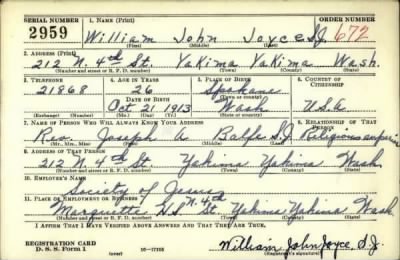 SERIAL NUMBER 1. NAME (Print) ORDER NUMBER
2959 William John Joyce S.J. 672
(First) (Middle) (Last)
2. ADDRESS (Print)
212 N. 4th St. Yakima Yakima Wash.
(Number and street or R. F. D. number) (Town) (County) (State)
3. TELEPHONE 4. AGE IN YEARS 5. PLACE OF BIRTH 6. COUNTRY OF CITIZENSHIP
21868 26 Spokane
DATE OF BIRTH (Town or county)
Oct 21 1913 Wash U.S.A
(Exchange) (Number) (Mo.) (Day) (Yr.) (State or country)
7. NAME OF PERSON WHO WILL ALWAYS KNOW YOUR ADDRESS 8. RELATIONSHIP OF THAT PERSON
Rev. Joseph A Balfe S.J. Religious superior
(Mr., Mrs., Miss) (First) (Middle) (Last)
9. ADDRESS OF THAT PERSON
212 N. 4th St Yakima Yakima Wash
(Number and street or R. F. D. number) (Town) (County) (State)
10. EMPLOYER'S NAME
Society of Jesus
11. PLACE OF EMPLOYMENT OR BUSINESS
Marquette H.S N. 4th St Yakima Yakima Wash
(Number and street or R. F. D. number) (Town) (County) (State)
I AFFIRM THAT I HAVE VERIFIED ABOVE ANSWERS AND THAT THEY ARE TRUE.
REGISTRATION CARD
D. S. S. Form 1 (over) William John Joyce, S.J.
(Registrant's signature)